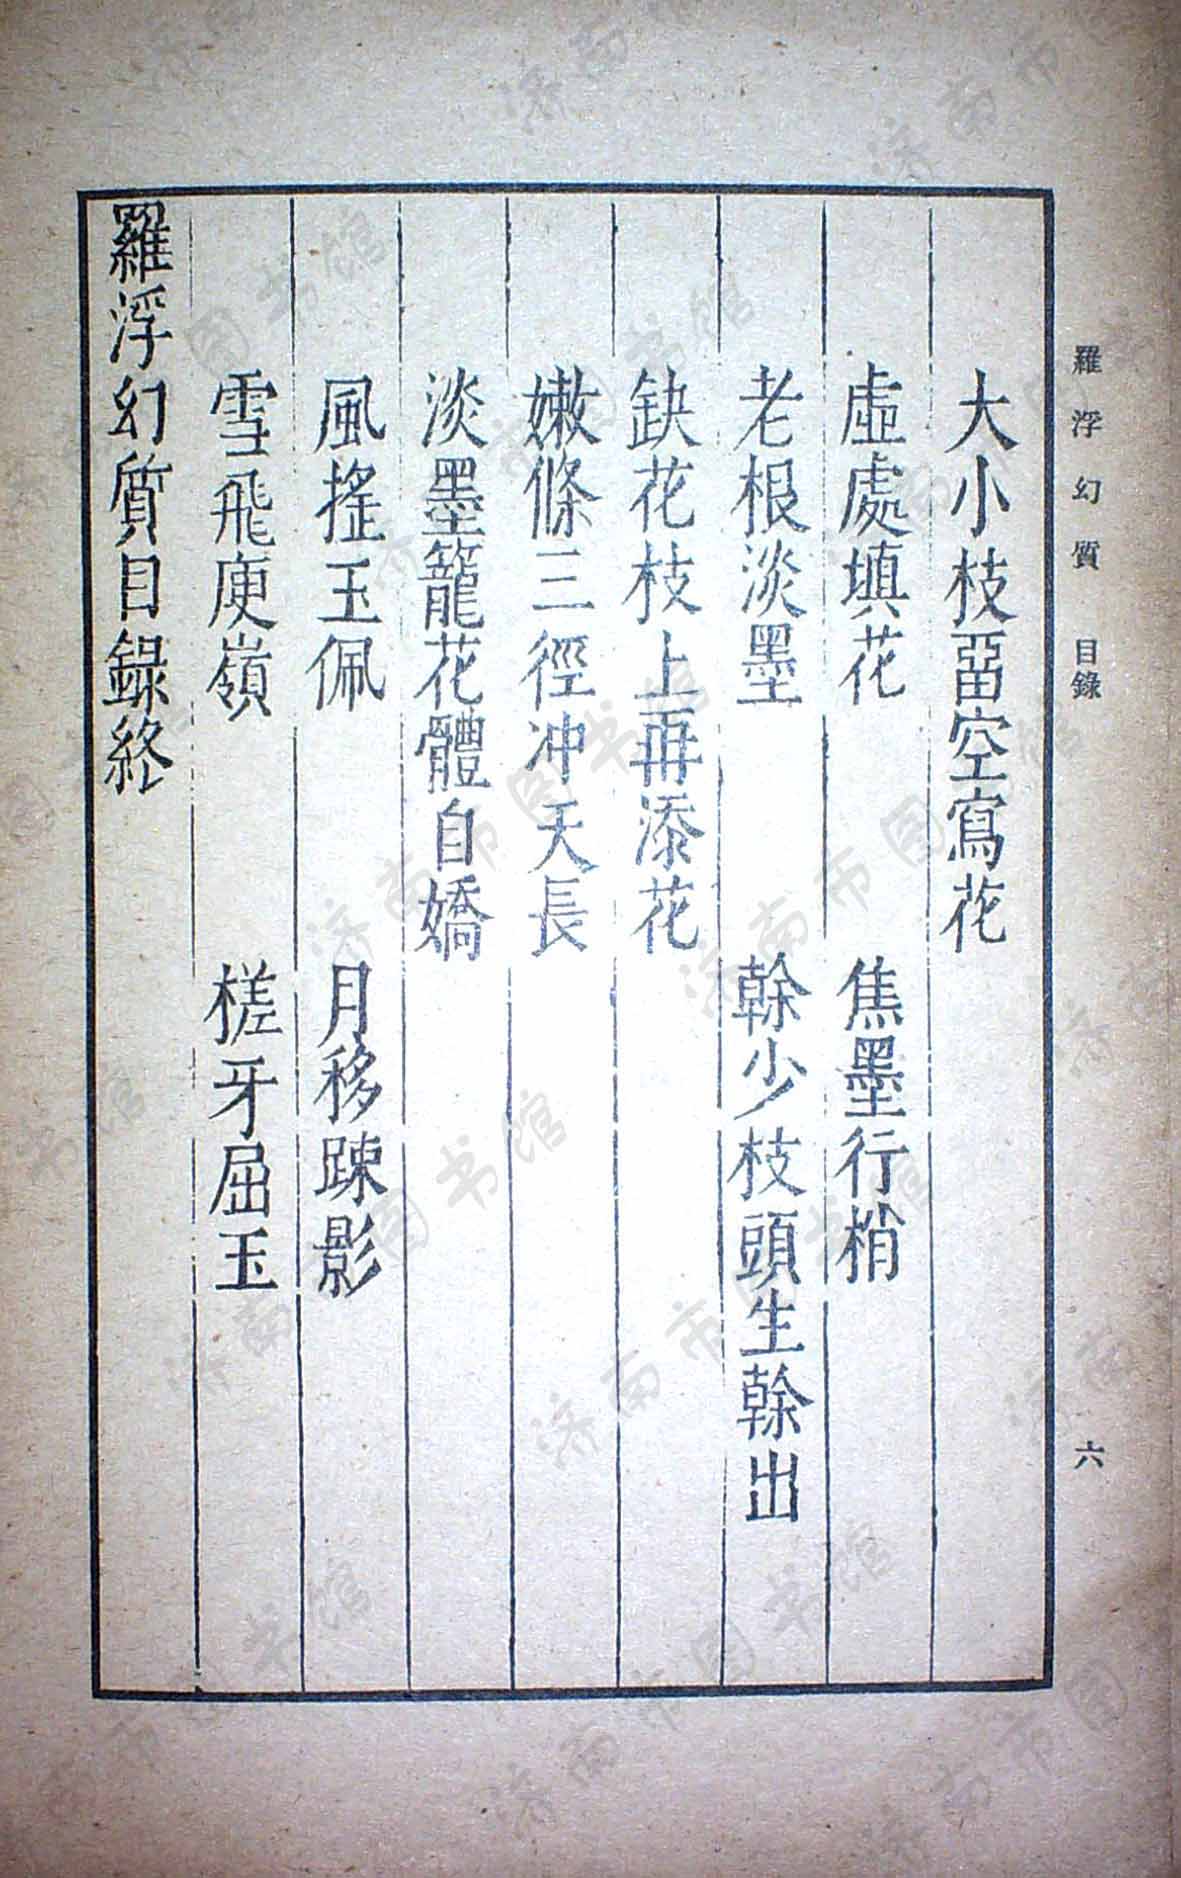 羅浮幻質 目錄 六
大小枝畱空寫花
虛處填花 焦墨行梢
老根淡墨 榦少枝頭生榦出
缺花枝上再添花
嫩條三徑冲天長
淡墨籠花體自嬌
風搖玉佩 月移踈影
雪飛庾嶺 槎牙屈玉
羅浮幻質目錄終
济南市图书馆